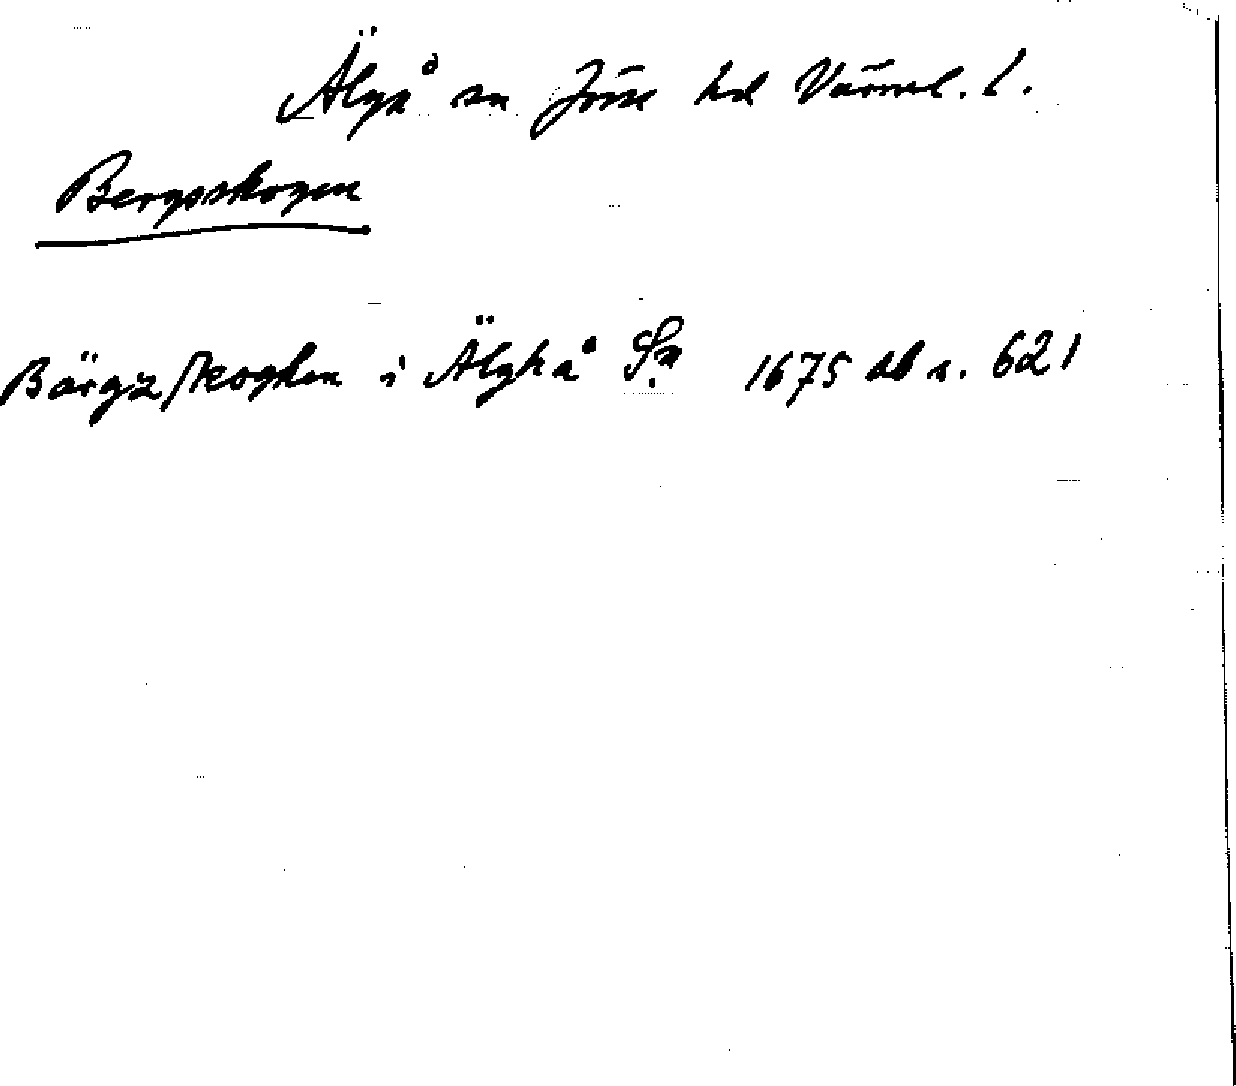 Älgå sn Jösse hd Värml. l.
Bergsskogen
Bärgzskoghen i Älghå Sn 1675 db s. 621